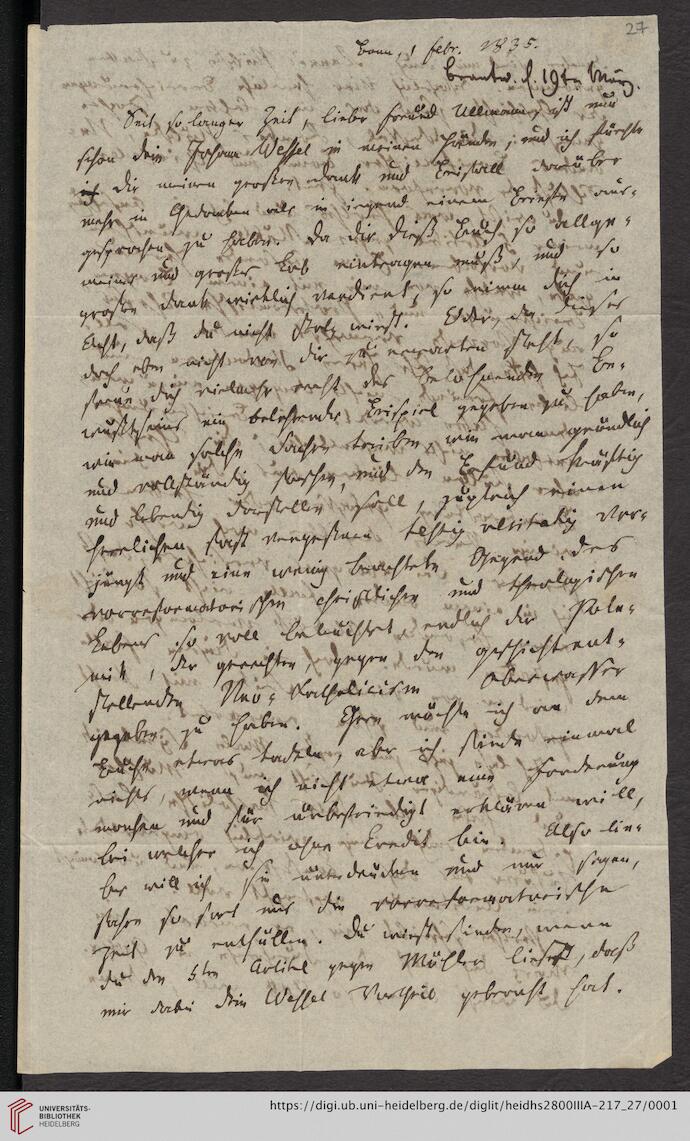 27
Bonn, 1 febr. 1835.
beantw. d. 19ten März.
Seit so langer Zeit, lieber Freund Ullmann, ist nun
schon dein Johann Wessel in meinen Händen, und ich fürchte
dir meinen großen Dank und Beifall darüber
mehr in Gedanken als in irgend einem Briefe aus-
gesprochen zu haben. Da dir dieß Buch so allge-
meines und großes Lob eintragen muß, und so
großen Dank wirklich verdient, so nimm dich in
Acht, daß du nicht stolz wirst. da dieses
doch eben nicht von dir zu erwarten steht, so
freue dich vielmehr recht des belohnenden Be-
wußtseins ein belehrendes Beispiel gegeben zu haben,
wie man solche Sachen treiben, wie man gründlich
und vollständig forschen, und den Befund kräftig
und lebendig darstellen soll, zugleich einen
herrlichen fast vergessenen vielseitig ver-
jüngt und eine wenig beachtete Gegend des
vorreformatorischen christlichen und theologischen
Lebens so voll beleuchtet, endlich der Pole-
mik, der gerechten, gegen den geschichtent-
stellenden Neo-Katholicism Oberwasser
gegeben zu haben. Gern möchte ich an dem
Buche etwas tadeln, aber ich finde einmal
nichts, wenn ich nicht etwa eine Forderung
machen und für unbefriedigt erklären will,
bei welcher ich ohne Credit bin. Also lie-
ber will ich sie unterdrücken und nur sagen,
fahre so fort uns die vorreformatorische
Zeit zu enthüllen. Du wirst finden, wenn
du den 5ten Artikel gegen Möhler liesest, daß
mir dabei dein Wessel Vortheil gebracht hat.
UNIVERSITÄTS-
BIBLIOTHEK
HEIDELBERG
https://digi.ub.uni-heidelberg.de/diglit/heidhs2800IIIA-217_27/0001